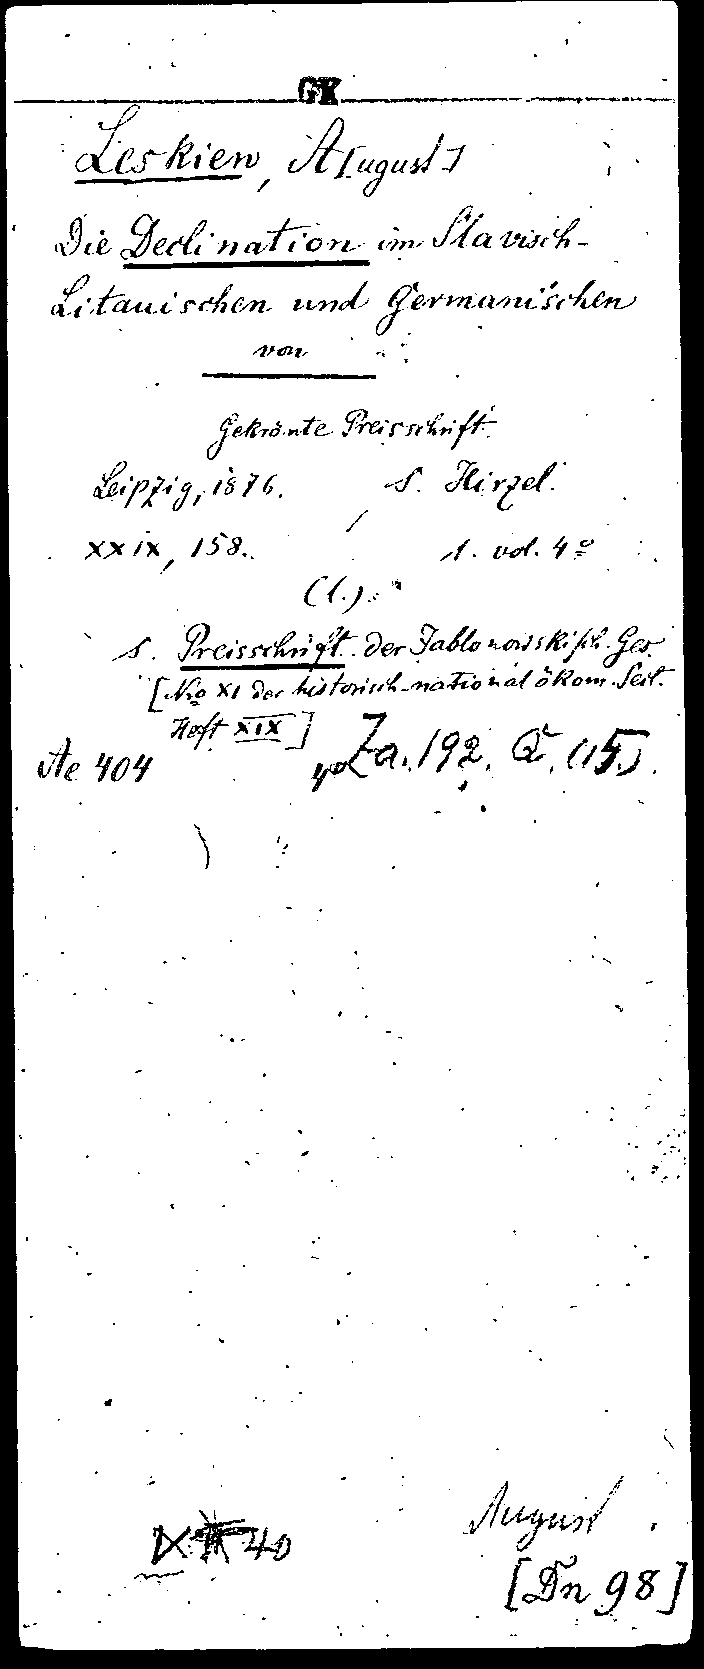 GK
Leskien, A[ugust]
Die Declination im Slavisch-
Litauischen und Germanischen
von
Gekrönte Preisschrift.
Leipzig, 1876. S. Hirzel.
XXIX, 158. 1. vol. 4º
(l.)
s. Preisschrift der Jablonowskisch. Ges.
[No XI der historisch-national ökom. Sect.
Heft XIX]
Ae 404 Za. 192. Q. (15.)
August
40
[Dn 98]